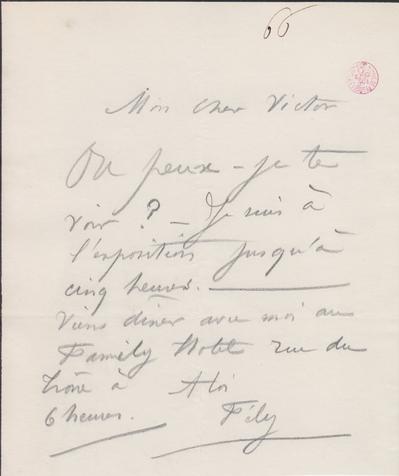 66
Mon cher Victor
Où peux-je te
voir ? – Je suis à
l'exposition jusqu'à
cinq heures.
Viens diner avec moi au
Family Hotel rue du
Trône à
6 heures. Fély